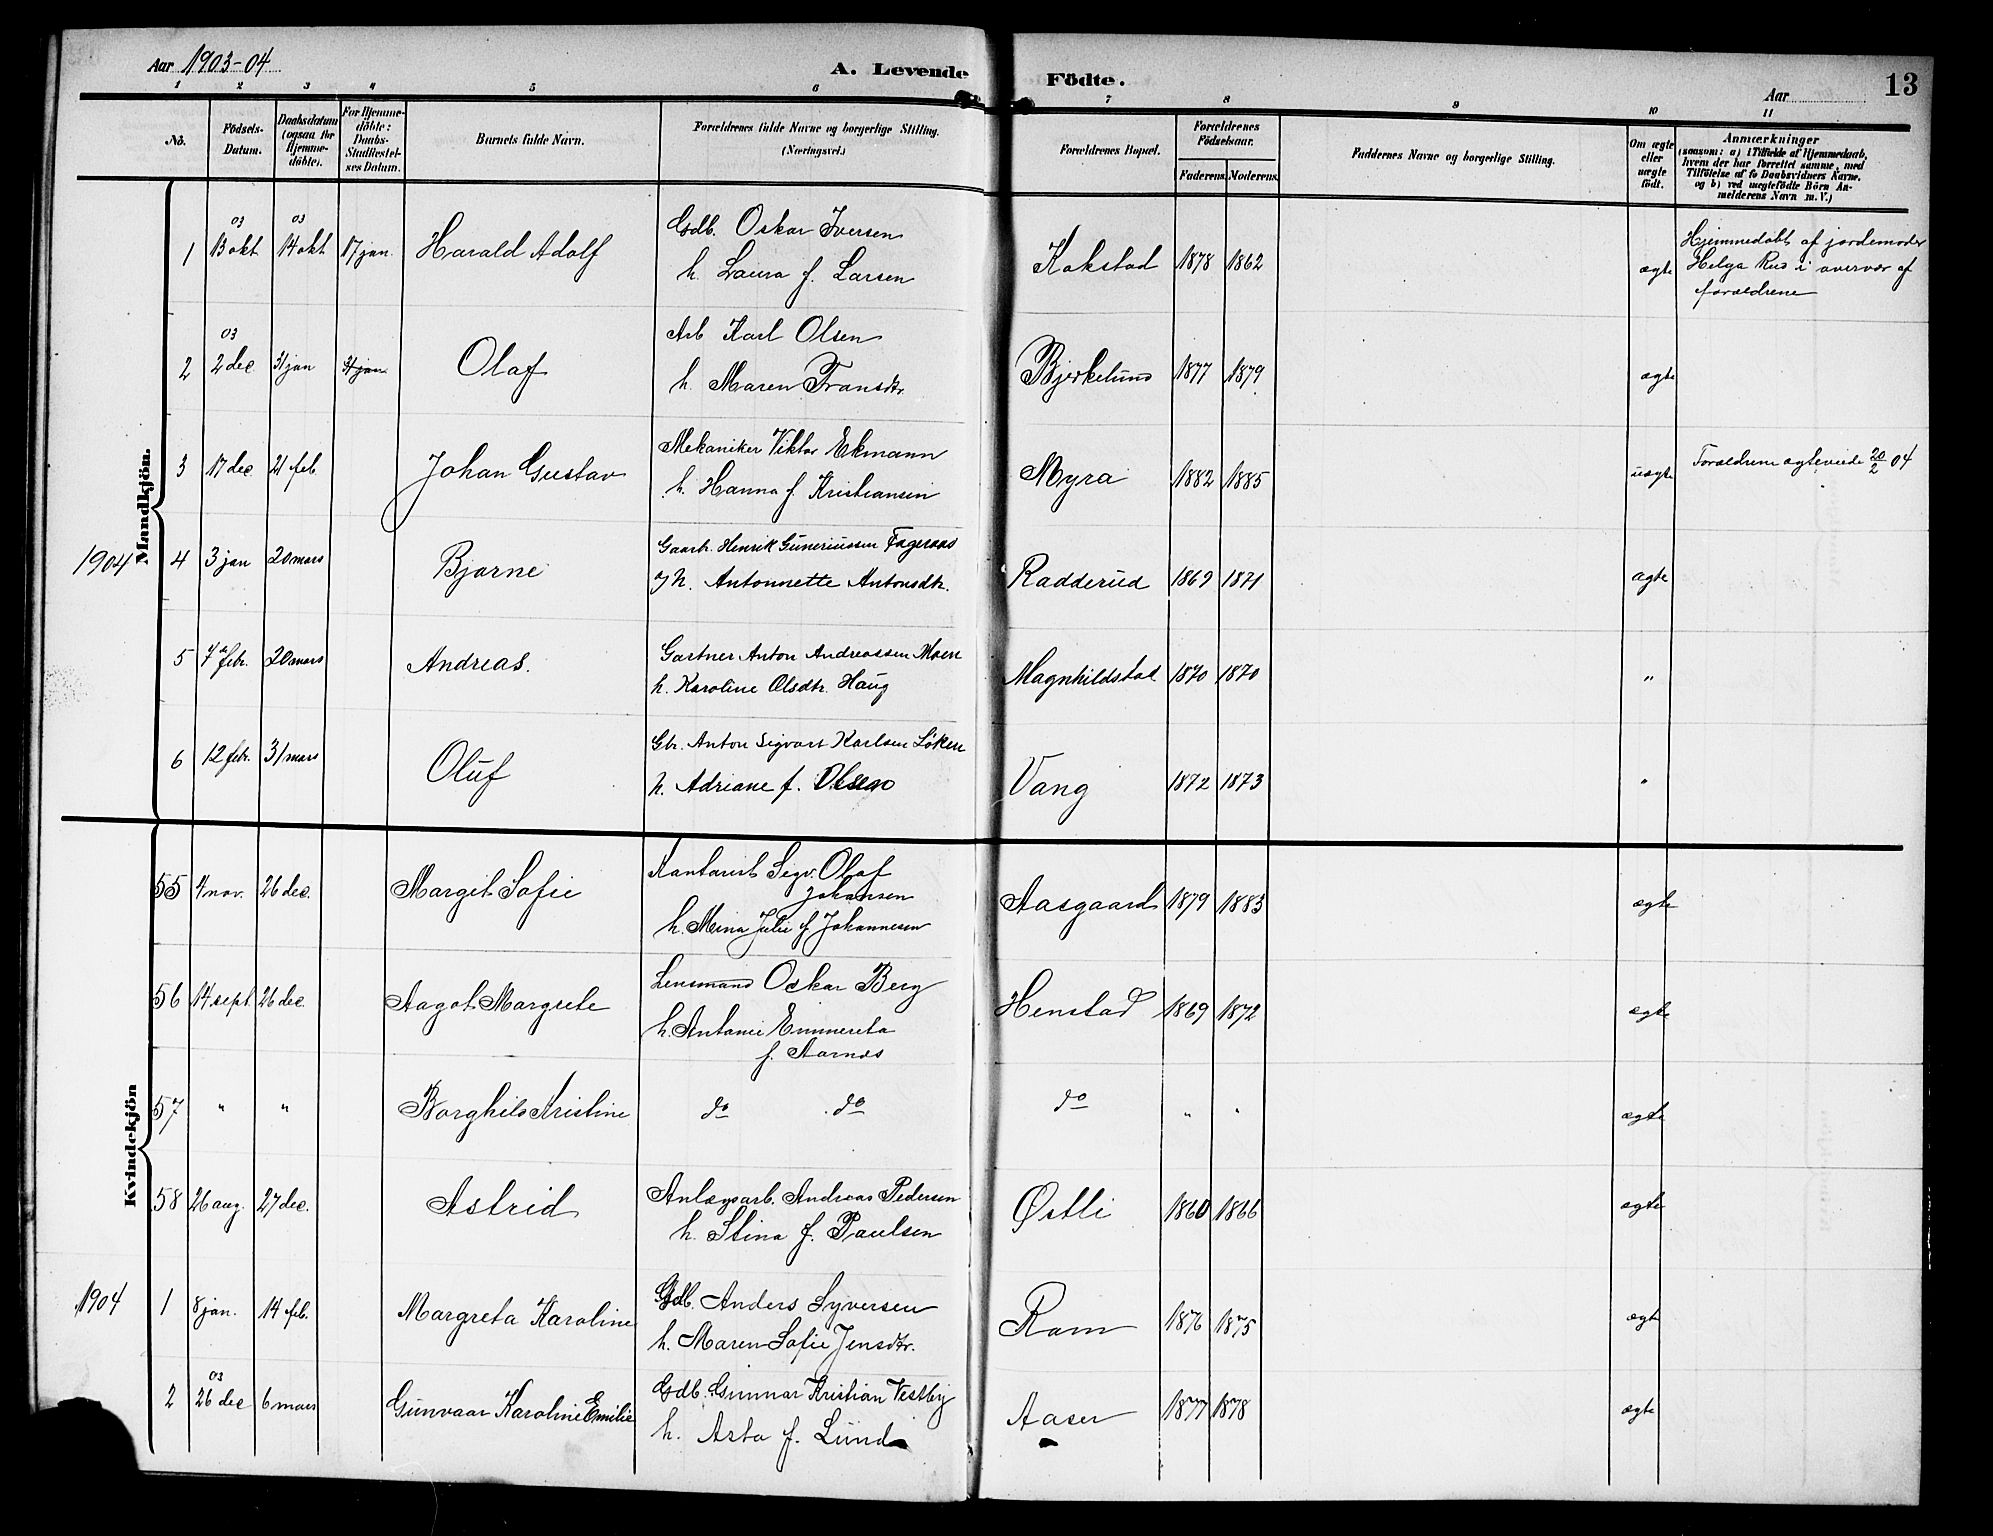 Aar 1903-04
A. Levende Födte.
Aar
13
1 2 3 4 5 6 7 8 9 10 11
No.
Födsels-Datum.
Daabsdatum (ogsaa for Hjemme-döbte).
For Hjemme-döbte: Daabs-Stadfæstel-ses Datum.
Barnets fulde Navn.
Forældrenes fulde Navne og borgerlige Stilling. (Næringsvei.)
Forældrenes Bopæl.
Forældrenes Födselsaar.
Faderens. Moderens.
Faddernes Navne og borgerlige Stilling.
Om ægte eller uægte födt.
Anmærkninger
(saasom: a) i Tilfælde af Hjemmedaab, hvem der har forrettet samme, med Tilföielse af to Daabsvidners Navne, og b) ved uægtefödte Börn An-melderens Navn m. V.)
Mandkjön.
03 03
1 13 okt 14 okt 17 jan. Harald Adolf Gdb. Oskar Iversen
h. Laura f. Larsen Kokstad 1878 1862 ægte
Hjemmedøbt af jordemoder
Helga Rud i overvær af
forældrene
03
2 2 dec 31 jan 31 jan Olaf Arb Karl Olsen
h. Maren Fransdtr. Bjerkelund 1877 1879 ægte
3 17 dec 21 feb. Johan Gustav Mekaniker Viktor Ekmann
h. Hanna f. Kristiansen Myra 1882 1885 uægte Forældrene ægteviede 20/2 04
1904 4 3 jan 20 mars Bjarne Gaarb. Henrik Guneriussen Fageraas
h. Antonnette Antonsdtr. Radderud 1869 1871 ægte
5 7 febr. 20 mars Andreas. Gartner Anton Andreassen Moen
h. Karoline Olsdtr. Haug Magnhildstad 1870 1870 "
6 12 febr. 31 mars Oluf Gbr. Anton Sigvart Karlsen Løken
h. Adriane f. Olsen Vang 1872 1873 "
Kvindekjön
55 4 nov. 26 dec. Margit Sofie Kontorist Sigv. Olaf
Johansen
h. Mina Julie f. Johannesen Aasgaard 1879 1883 ægte
56 14 sept. 26 dec. Aagot Margrete Lensmand Oskar Berg
h. Antonie Emmereta
f. Aarnæs Henstad 1869 1872 ægte
57 " " Borghild Kristine do do do " " ægte
58 26 aug. 27 dec. Astrid Anlægsarb. Andreas Pedersen
h. Stina f. Paulsen Østli 1860 1866 ægte
1904 1 8 jan. 14 feb. Margreta Karoline Gdb. Anders Syversen
h. Maren Sofie Jensdtr. Ram 1876 1875 ægte
03
2 26 dec 6 mars Gunvaar Karoline Emilie Gdb. Gunnar Kristian Vestby
h. Asta f. Lund Aaser 1877 1878 ægte